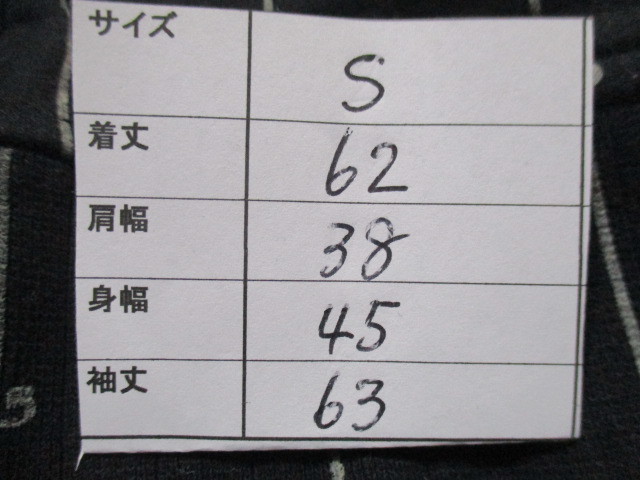 サイズ S
着丈 62
肩幅 38
身幅 45
袖丈 63